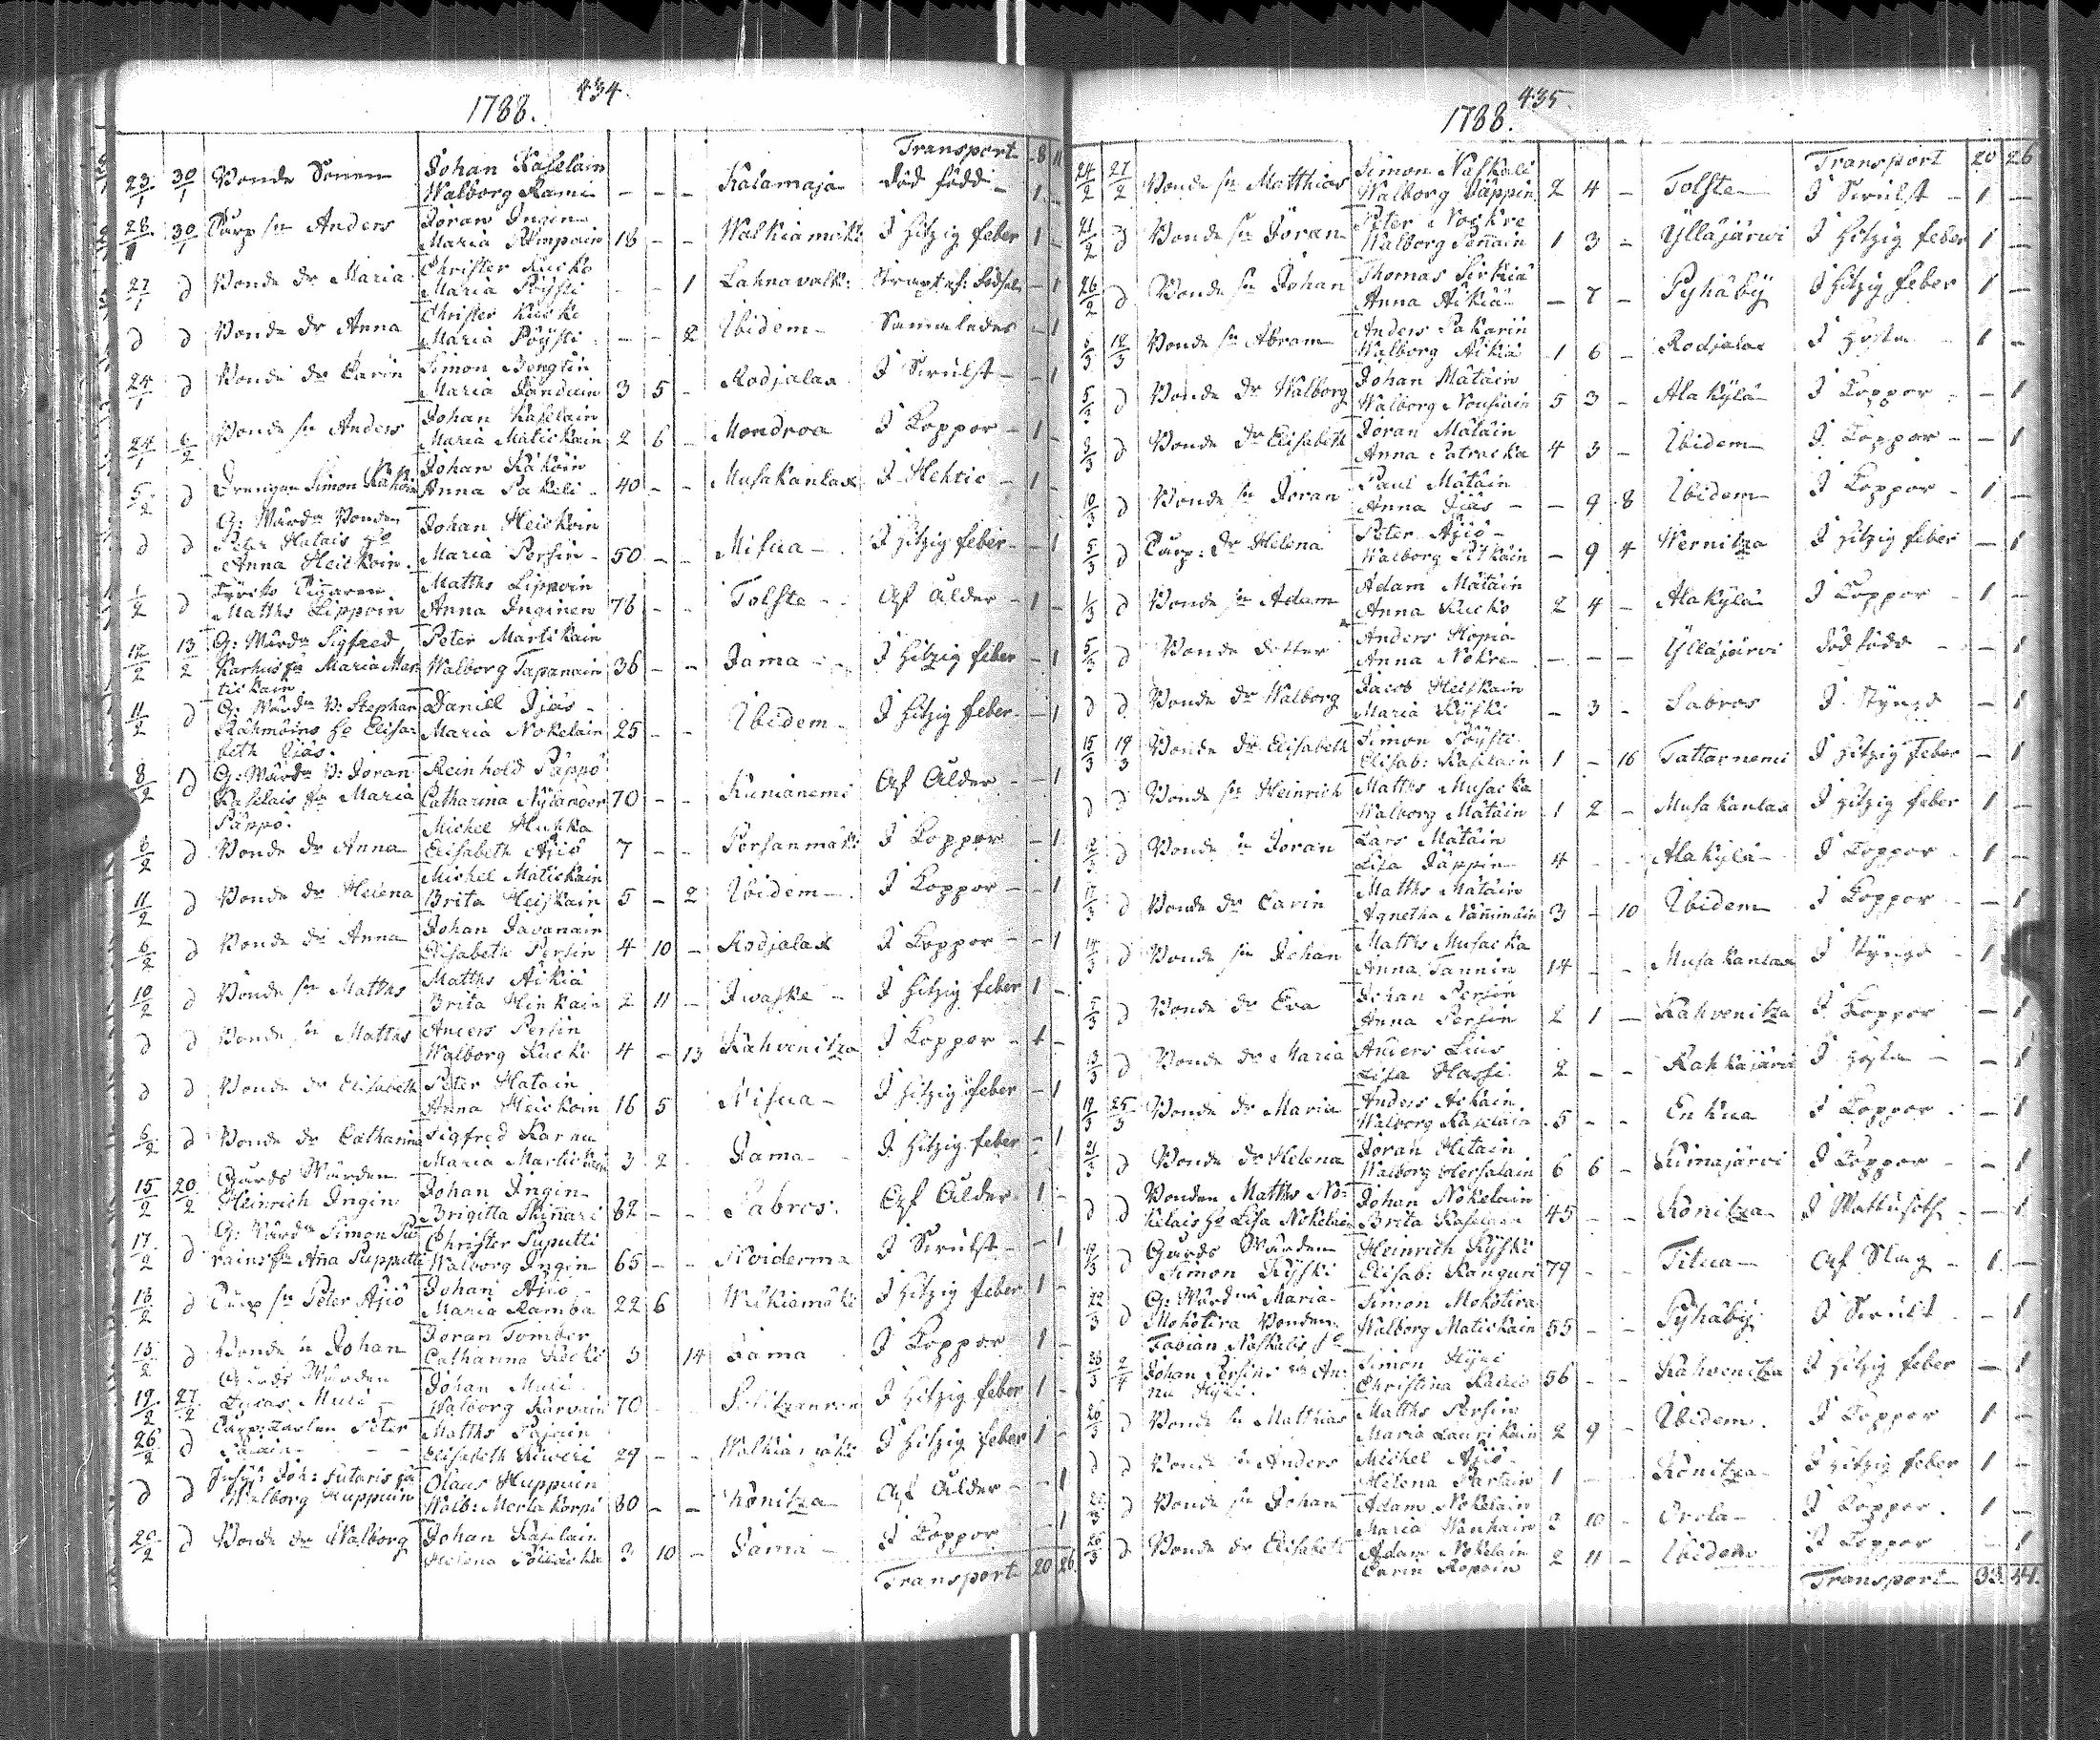 434
1788.
Transport 8 11
23/1 30/1 Bonde Sonen Johan Kaselain
Walborg Rami - - - Kalamaja död född 1 -
28/1 30/1 Torp sn Anders Jöran Ingin
Maria Pimpain 18 - - Walkiamäki I hitzig feber 1 -
27/1 d Bonde dr Maria Christer Kucko
Maria Pöysti - - 1 Lahnavalk: Straxt ef: födseln - 1
d d Bonde dr Anna Christer Kucko
Maria Pöysti - - 2 Ibidem Sammaledes - 1
24/1 d Bonde dr Carin Simon Bengtin
Maria 3 5 - Rodjalax I Swulst - 1
24/1 6/2 Bonde sn Anders Johan Kaselain
Maria Matickain 2 6 - Mondroa I Koppor 1 -
5/2 d Drengen Simon Kaköin Johan Kaköin
Anna Pakeli 40 - - Musakanlax I Hektic 1 -
d d G: Wärdn Bonden Johan Heickoin
Peter Hatais ho
Anna Heickoin. Maria Persin 50 - - Misua I hitzig feber - 1
1/2 d Matths Lippoin
Matths Lippoin Anna Inginen 76 - - Tolste Af Ålder 1 -
12/2 13/2 G: Wärdn Sigfred Peter Martikain
Karhus ho Maria Mar Walborg Tapanain 36 - - Jama I hitzig feber - 1
tickain
11/2 d G: Wärdn B: Stephan Daniel Ijäs
Rähmöins ho Elisa: Maria Nokelain 25 - - Ibidem I hitzig feber - 1
beth Ijäs.
8/2 d G: Wärdn B: Jöran Reinhold Päppö
Kaselais ho Maria Catharina Nylander 70 - - Kunianemi Af Ålder - 1
Päppö.
6/2 d Bonde dr Anna Michel Hukka
Elisabeth Äjiö 7 - - Porsanmäki I Koppor - 1
11/2 d Bonde dr Helena Michel Matickain
Brita Heiskain 5 - 2 Ibidem I Koppor - 1
6/2 d Bonde dr Anna Johan Javanain
Elisabeth Persin 4 10 - Rodjalax I Koppor - 1
10/2 d Bonde sn Matths Matths Äikiä
Brita Hinkain 2 11 - Iwaske I hitzig feber 1 -
d d Bonde sn Matths Anders Persin
Walborg Kucko 4 - 13 Kahvenitza I Koppor 1 -
d d Bonde dr Elisabeth Peter Hatain
Anna Heickoin 16 5 Misua I hitzig feber - 1
6/2 d Bonde dr Catharina Sigfred Karhu
Maria Martickain 3 2 - Jama I hitzig feber - 1
15/2 20/2 Gårds Wärden Johan Ingin
Heinrich Ingin Brigitta Skinnari 82 - - Sabros Af Ålder 1 -
17/2 d G: Wärdn Simon Christer Suputti
rains ho Ana Supputti Walborg Ingin 65 - - Noiderma I Swulst - 1
13/2 d Torp sn Peter Äjiö Johan Äjiö
Maria Ramba 22 6 Walkiamäki I hitzig feber 1 -
15/2 d Bonde sn Johan Jöran Tomber
Catharina Kucko 3 14 Jama I Koppor 1 -
19/2 27/2 Gårds Wärden Johan Muli
Lucas Muli Walborg Karvain 70 I hitzig feber 1 -
26/2 d Torp: Karlen Peter Matths Pajain
Pajain Elisabeth Kiweri 29 - - Walkiamäki I hitzig feber 1 -
d d Inhys: Joh: Sutaris ho Olaus Huppoin
Walborg Huppoin Walb: Merlakorpi 80 - - Könitza Af Ålder - 1
20/2 d Bonde dr Walborg Johan Kaselain
Helena 3 10 - Jama I Koppor - 1
Transport 20 26
435
1788.
Transport 20 26
24/2 27/2 Bonde sn Matthias Simon Naskali
Walborg Jäppin 2 4 - Tolste I Swulst 1 -
21/2 d Bonde sn Jöran Peter Nockre
Walborg Pennain 1 3 - Ylläjärwi I hitzig feber 1 -
26/2 d Bonde sn Johan Thomas Sirkiä
Anna Äikiä - 7 - Pyhäby I hitzig feber 1 -
6/3 12/3 Bonde sn Abram Anders Pakarin
Walborg Äikiä 1 6 - Rodjalax I Hosta 1 -
5/3 d Bonde dr Walborg Johan Mätäin
Walborg Nousiain 5 3 - Alakylä I Koppor - 1
3/3 d Bonde dr Elisabeth Jöran Mätäin
Anna Patracka 4 3 - Ibidem I Koppor - 1
10/3 d Bonde sn Jöran Paul Mätäin
Anna Ijäs - 9 8 Ibidem I Koppor 1 -
5/3 d Torp: dr Helena Peter Äjiö
Walborg Pitkäin - 9 4 Wernitza I hitzig feber - 1
1/3 d Bonde sn Adam Adam Mätäin
Anna Kucko 2 4 - Alakylä I Koppor 1 -
5/3 d Bonde dotter Anders Hopia
Anna Nokre - - - Ylläjärvi död född - 1
d d Bonde dr Walborg Jacob Heiskain
Maria Kyski - 3 - Sabros I Styng - 1
15/3 19/3 Bonde dr Elisabeth Simon Pöysti
Elisab: Kaselain 1 - 16 Tattarnemi I hitzig feber - 1
d d Bonde sn Heinrich Matths Musacka
Walborg Mätäin 1 2 - Musakanlax I hitzig feber 1 -
2/3 d Bonde sn Jöran Lars Mätäin
Lisa Jäppin 4 - - Alakylä I Koppor 1 -
17/3 d Bonde dr Carin Matths Mätäin
Agnetha Nännimäin 3 - 10 Ibidem I Koppor - 1
14/3 d Bonde sn Johan Matths Musacka
Anna Tannin 14 - - Musakanlax I Styng 1
5/3 d Bonde dr Eva Johan Persin
Anna Persin 2 1 - Kahvenitza I Koppor - 1
13/3 d Bonde dr Maria Anders Lius
Lisa Hassi 2 - - Rahkajärvi I Hosta - 1
19/3 25/3 Bonde dr Maria Anders Ackain
Walborg Kaselain 5 - - Enkua I Koppor - 1
21/3 d Bonde dr Helena Jöran Hitain
Walborg Hersalain 6 6 - Kimajärvi I Koppor - 1
d d Bonden Matths No: Johan Nokelain
kelais ho Lisa Nokelain Brita Kaselain 45 - - Könitza I Wattusoth - 1
19/3 d Gårds Wärden Heinrich Kyski
Simon Kyski Elisab: Kanguri 79 - - Titua Af Slag 1 -
22/3 d G: Wärdn Maria Simon Mokotira
Mokotira Bonden Walborg Matickain 55 - - Pyhäby I Swulst - 1
Fabian Naskalis ho
26/3 2/4 Johan Persins ho An: Simon Hyki
na Hyki. Christina Kucko 56 - - Kahvenitza I hitzig feber - 1
26/3 d Bonde sn Matthias Matths Persin
Maria Laurikain 2 9 - Ibidem I Koppor 1 -
d d Bonde sn Anders Michel Äjiö
Helena Partain 1 - - Könitza I hitzig feber 1 -
d Bonde sn Johan Adam Nokelain
Maria Wanhain 2 10 - Orola I Koppor 1 -
26/3 d Bonde dr Elisabeth Adam Nokelain
Carin Ropoin 2 11 - Ibidem I Koppor - 1
Transport 33. 44.